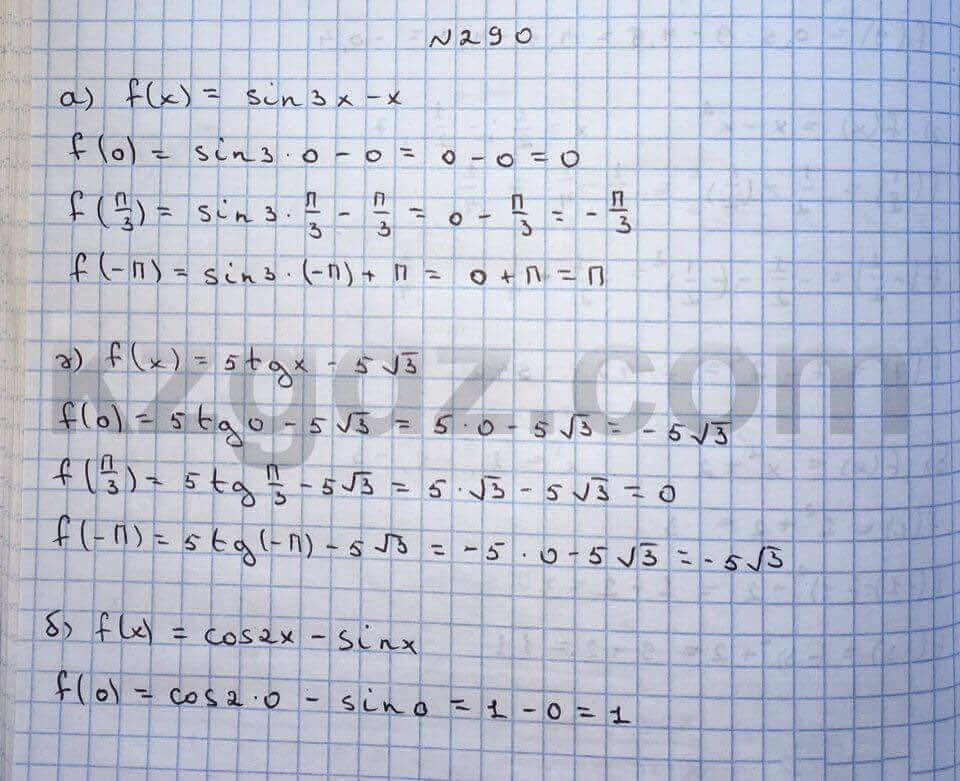 N290
а) f(x) = sin3x - x
f(0) = sin3·0 - 0 = 0 - 0 = 0
f(π/3) = sin3·π/3 - π/3 = 0 - π/3 = -π/3
f(-π) = sin3·(-π) + π = 0 + π = π
г) f(x) = 5tgx - 5√3
kzgdz.com
f(0) = 5tg0 - 5√3 = 5·0 - 5√3 = -5√3
f(π/3) = 5tg π/3 - 5√3 = 5·√3 - 5√3 = 0
f(-π) = 5tg(-π) - 5√3 = -5·0 - 5√3 = -5√3
б) f(x) = cos2x - sinx
f(0) = cos2·0 - sin0 = 1 - 0 = 1